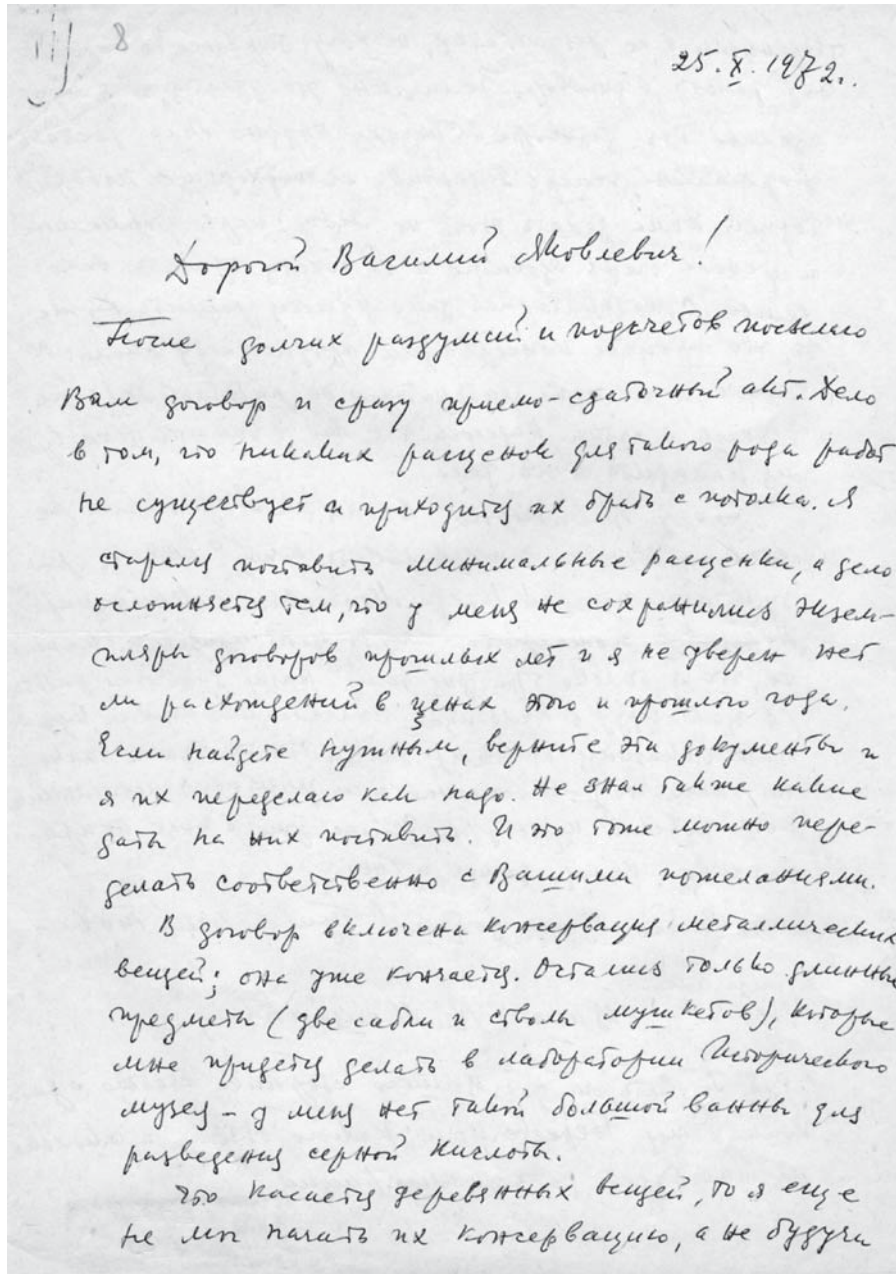 8
25.X.1972г.
Дорогой Василий Яковлевич!
После долгих раздумий и подсчетов посылаю
Вам договор и сразу приемо-сдаточный акт. Дело
в том, что никаких расценок для такого рода работ
не существует и приходится их брать с потолка. Я
старался поставить минимальные расценки, а дело
осложняется тем, что у меня не сохранились экзем-
пляры договоров прошлых лет и я не уверен нет
ли расхождений в ценах этого и прошлого года.
Если найдете нужным, верните эти документы и
я их переделаю как надо. Не знал также какие
даты на них поставить. И это тоже можно пере-
делать соответственно с Вашими пожеланиями.
В договор включена консервация металлических
вещей; она уже кончается. Остались только длинные
предметы (две сабли и стволы мушкетов), которые
мне придется делать в лаборатории Исторического
музея – у меня нет такой большой ванны для
разведения серной кислоты.
Что касается деревянных вещей, то я еще
не мог начать их консервацию, а не будучи